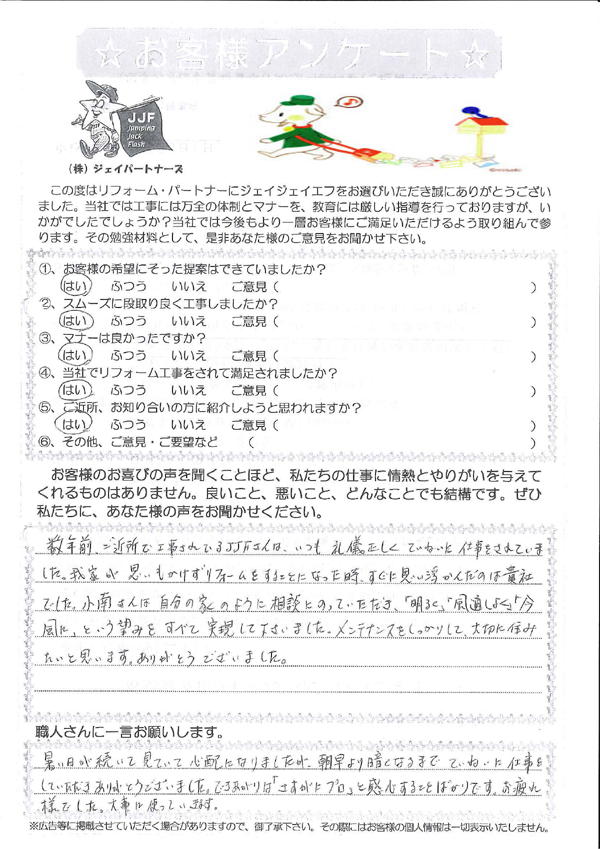 ☆お客様アンケート☆
JJF
Jumping
Jack
Flash
(株)ジェイパートナーズ
この度はリフォーム・パートナーにジェイジェイエフをお選びいただき誠にありがとうござい
ました。当社では工事には万全の体制とマナーを、教育には厳しい指導を行っておりますが、い
かがでしたでしょうか?当社では今後もより一層お客様にご満足いただけるよう取り組んで参
ります。その勉強材料として、是非あなた様のご意見をお聞かせ下さい。
①、お客様の希望にそった提案はできていましたか?
はい ふつう いいえ ご意見( )
②、スムーズに段取り良く工事しましたか?
はい ふつう いいえ ご意見( )
③、マナーは良かったですか?
はい ふつう いいえ ご意見( )
④、当社でリフォーム工事をされて満足されましたか?
はい ふつう いいえ ご意見( )
⑤、ご近所、お知り合いの方に紹介しようと思われますか?
はい ふつう いいえ ご意見( )
⑥、その他、ご意見・ご要望など ( )
お客様のお喜びの声を聞くことほど、私たちの仕事に情熱とやりがいを与えて
くれるものはありません。良いこと、悪いこと、どんなことでも結構です。ぜひ
私たちに、あなた様の声をお聞かせください。
数年前、ご近所で工事されているJJFさんは、いつも礼儀正しくていねいに仕事をされていま
した。我家が思いもかけずリフォームをすることになった時、すぐに思い浮かんだのは貴社
でした。小南さんは自分の家のように相談にのっていただき、「明るく」「風通しよく」「今
風に」という望みをすべて実現して下さいました。メンテナンスをしっかりして、大切に住み
たいと思います。ありがとうございました。
職人さんに一言お願いします。
暑い日が続いて見ていて心配になりましたが、朝早より暗くなるまでていねいに仕事を
していただきありがとうございました。できあがりは「さすがにプロ」と感心することばかりです。お疲れ
様でした。大事に使っていきます。
※広告等に掲載させていただく場合がありますので、御了承下さい。その際にはお客様の個人情報は一切表示いたしません。